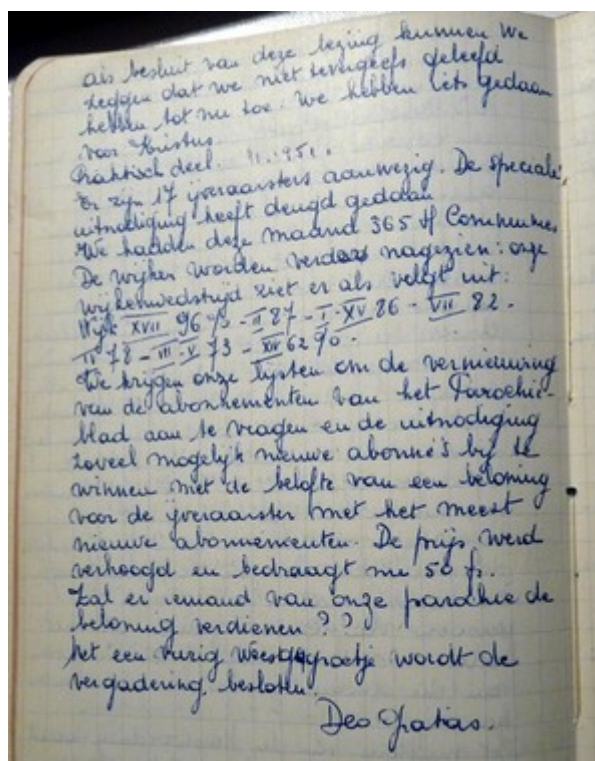 als besluit van deze lezing kunnen we
zeggen dat we niet tevergeefs geleefd
hebben tot nu toe. We hebben iets gedaan
voor Kristus.
Praktisch deel.
Er zijn 17 yveraarsters aanwezig. De speciale
uitnodiging heeft deugd gedaan
We hadden deze maand 365 H Communies
De wijken worden verder nagezien: onze
wijkenwedstrijd ziet er als volgt uit:
Wijk XVII 96 % - II 87 - I - XV 86 - VII 82.
IV 78 - III - V 73 - XIV 62 %.
We krijgen onze lijsten om de vernieuwing
van de abonnementen van het Parochie-
blad aan te vragen en de uitnodiging
zoveel mogelijk nieuwe abonné's by te
winnen met de belofte van een beloning
voor de yveraarster met het meest
nieuwe abonnementen. De prijs werd
verhoogd en bedraagt nu 50 fr.
Zal er iemand van onze parochie de
beloning verdienen???
Met een vurig weesgegroetje wordt de
vergadering besloten.
Deo Gratias.